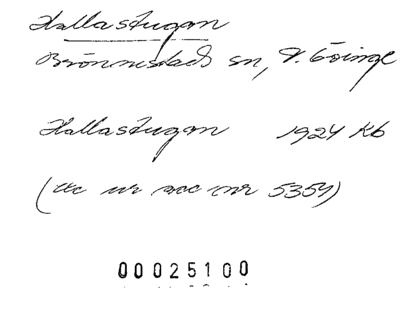 Hallastugan
Brönnestads sn, V. Göinge
Hallastugan 1924 Kb
(xx ur acc nr 5354)
00025100